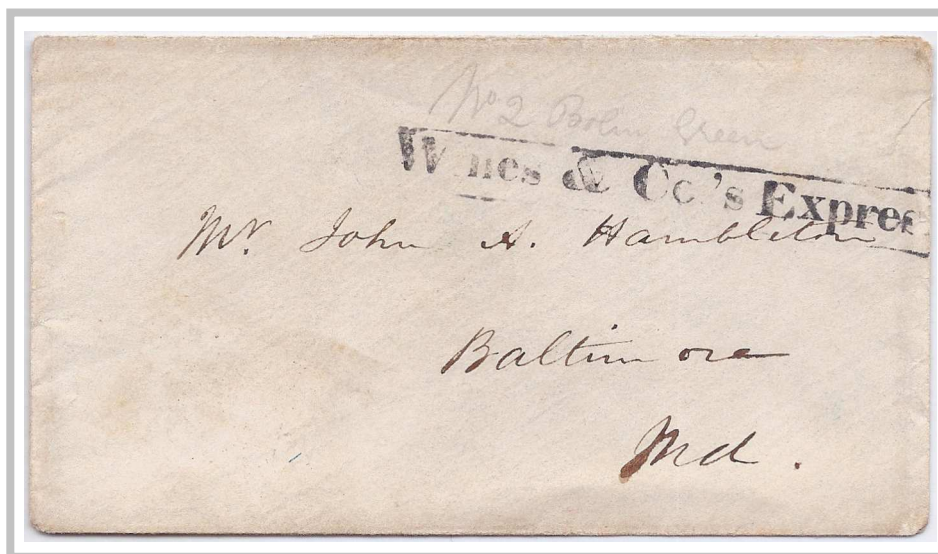 No 2 Bolin Green
W nes & Co.'s Expres
Mr. John A. Hambleton
Baltimore
Md.